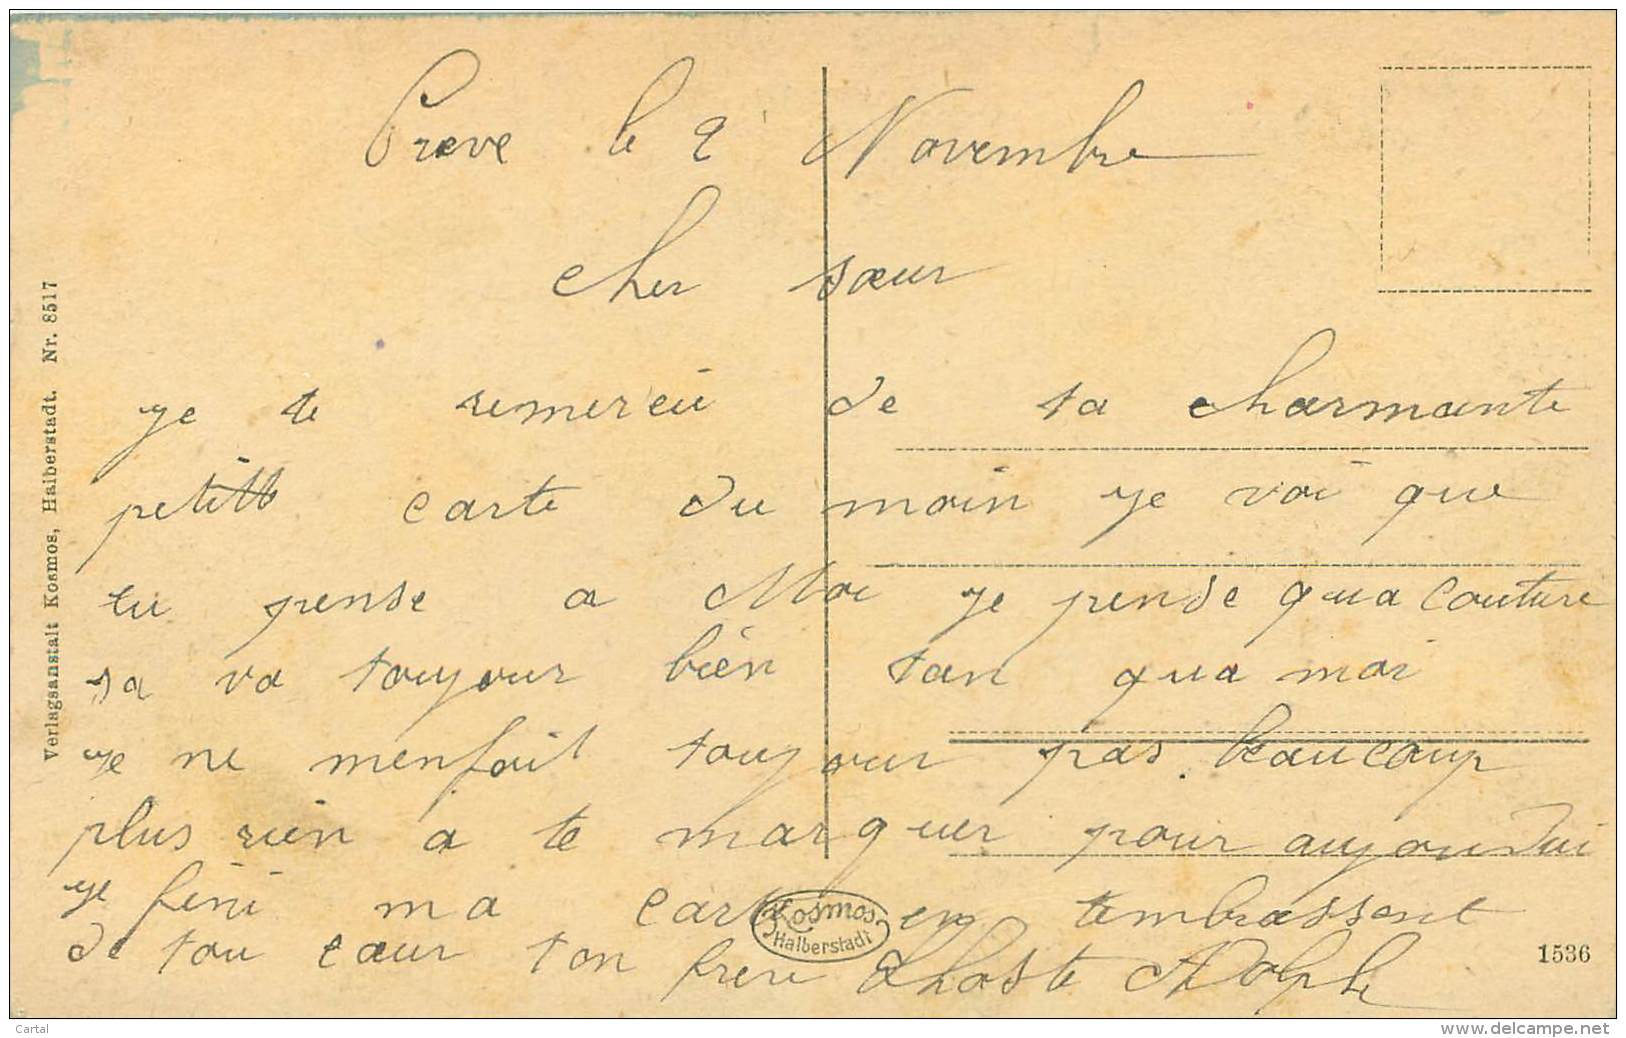 Preve le 2 Novembre
cher sœur
je te remercii de ta charmante
petitte carte du moin je voi que
tu pense a Moi je pense qua couture
sa va toujour bien tan qua moi
je ne menfait toujour pas beaucoup
plus rien a te marquer pour aujourdui
je fini ma carte en tembrassent
de tou cœur ton frere Lhoste Adolphe
Verlagsanstalt Kosmos, Halberstadt. Nr. 8517
Kosmos
Halberstadt
1536
Cartal
www.delcampe.net